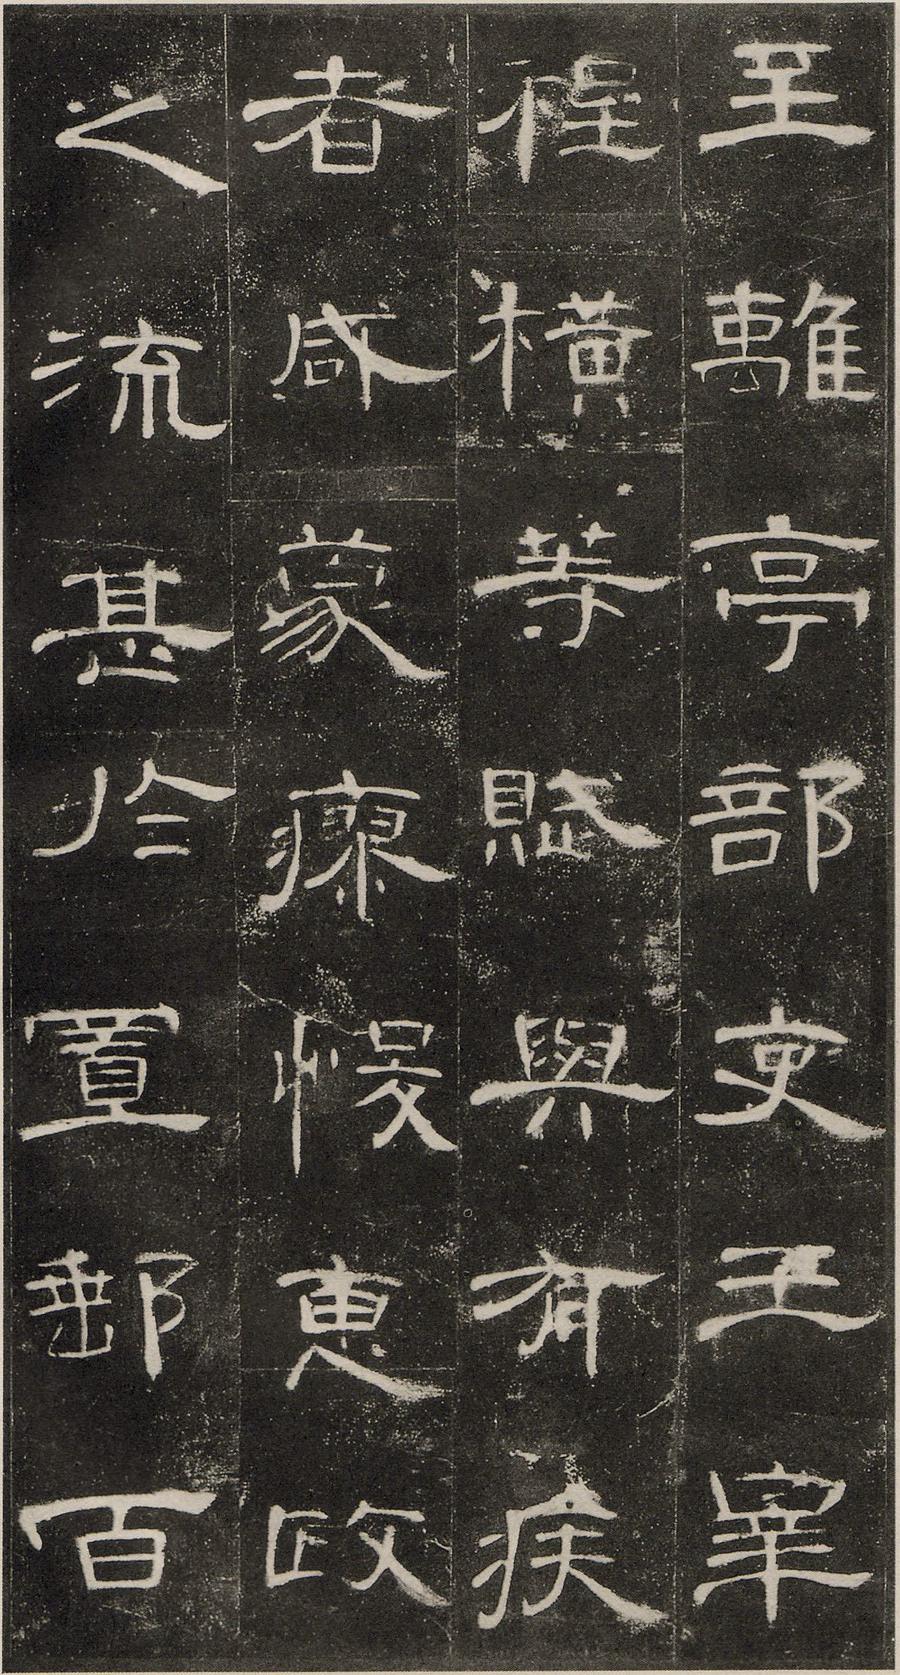 至離亭部吏王皋
程橫等賦與有疾
者咸蒙瘳悛惠政
之流甚於置郵百